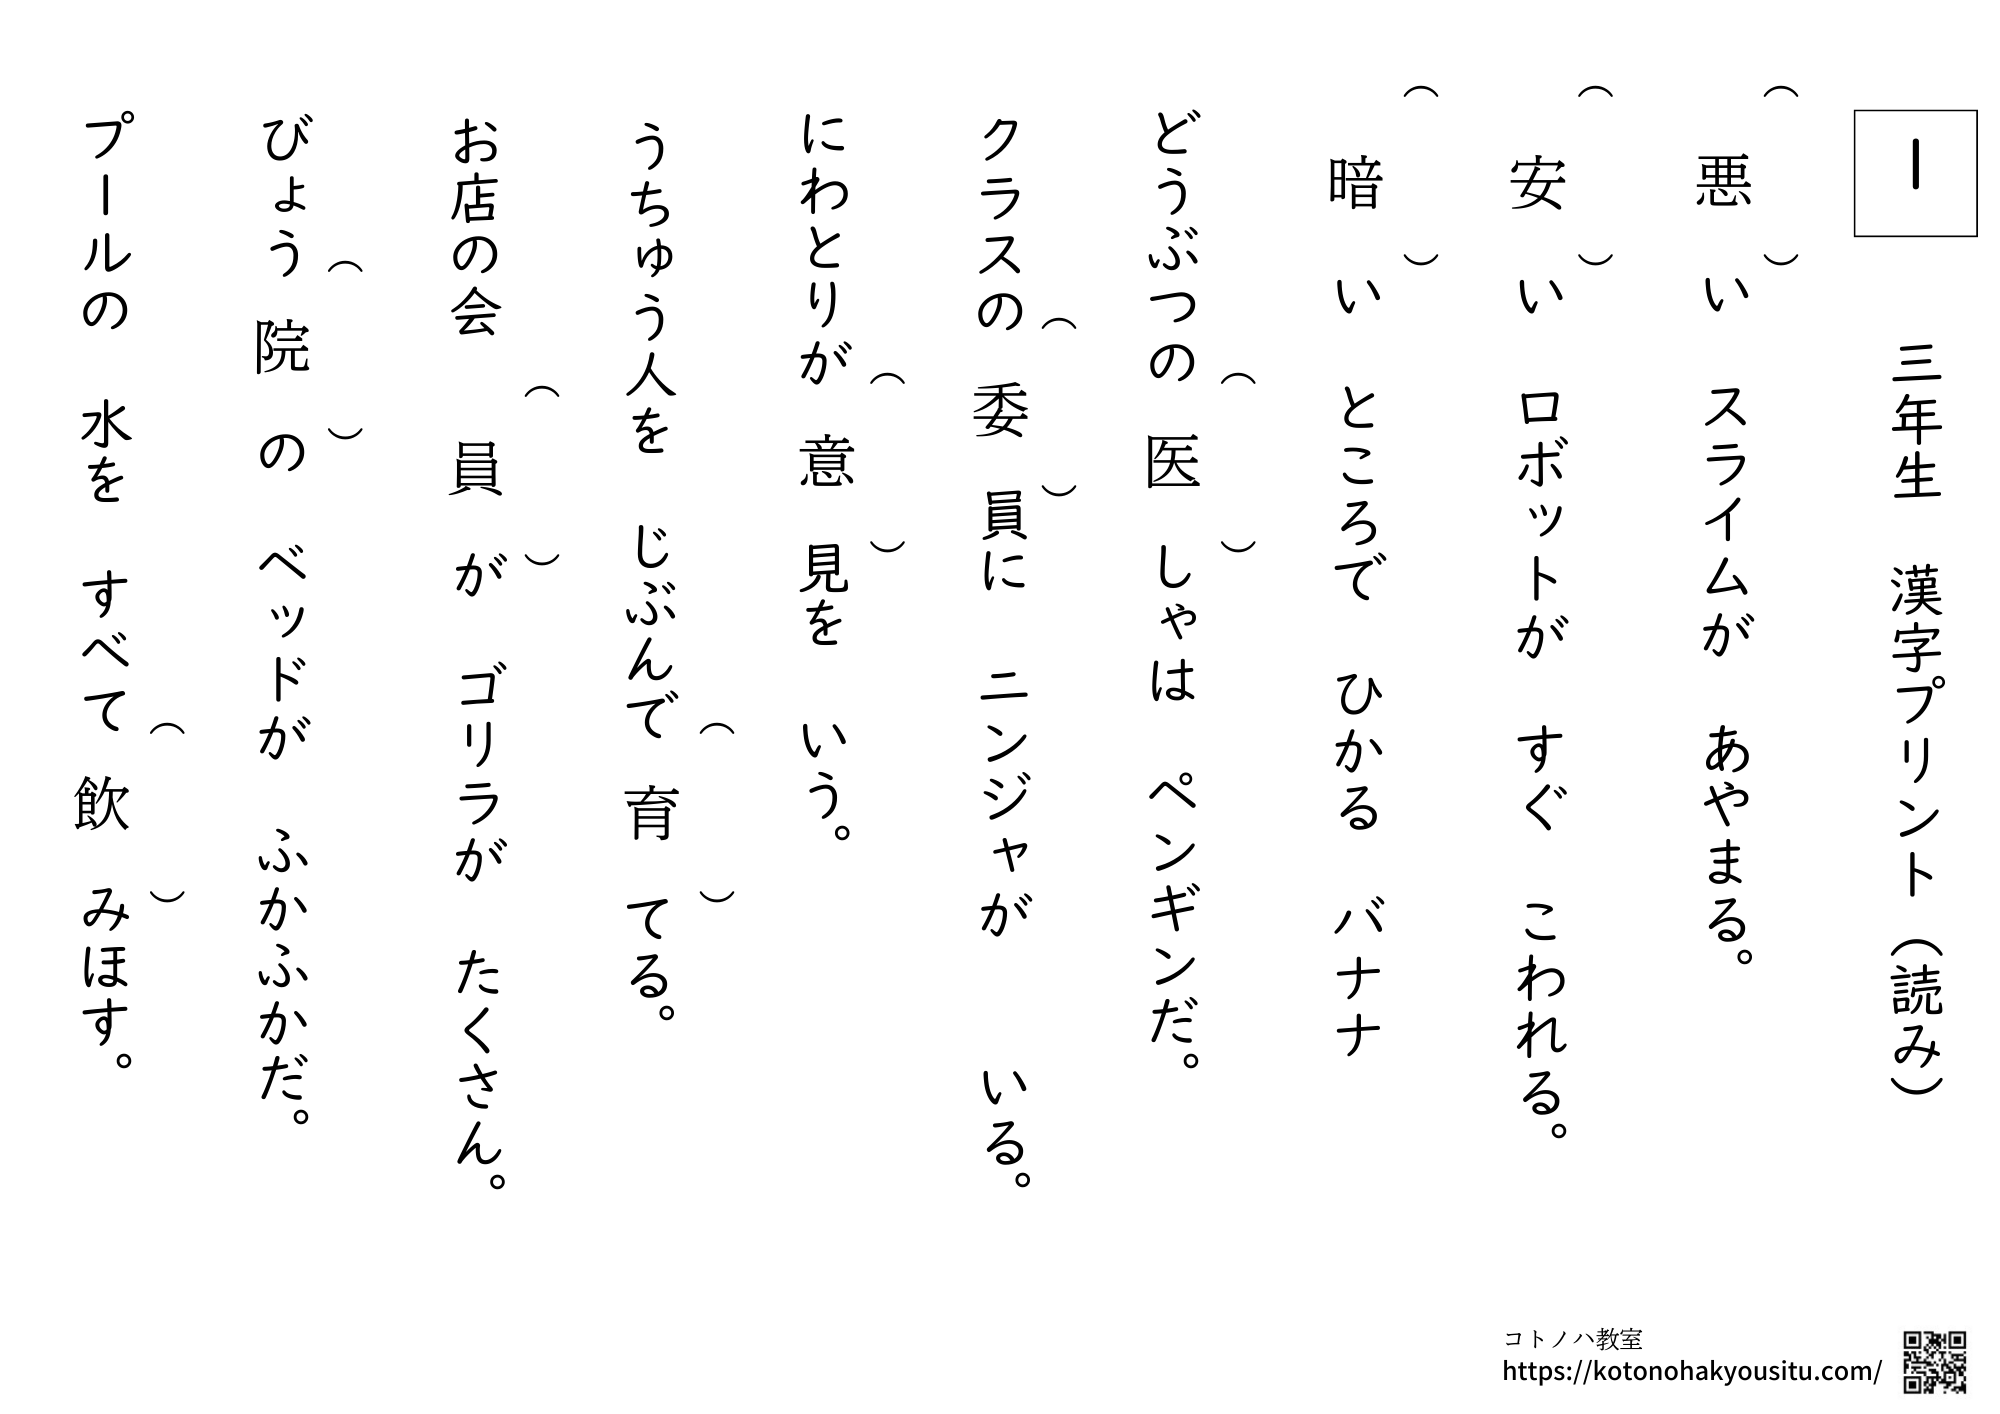 1
三年生　漢字プリント（読み）
（　）
悪い　スライムが　あやまる。
（　）
安い　ロボットが　すぐ　こわれる。
（　）
暗い　ところで　ひかる　バナナ
（　）
どうぶつの医しゃは　ペンギンだ。
（　）
クラスの委員に　ニンジャが　いる。
（　）
にわとりが意見を　いう。
（　）
うちゅう人を　じぶんで育てる。
（　）
お店の会員が　ゴリラが　たくさん。
（　）
びょう院の　ベッドが　ふかふかだ。
（　）
プールの　水を　すべて飲みほす。
コトノハ教室
https://kotonohakyousitu.com/